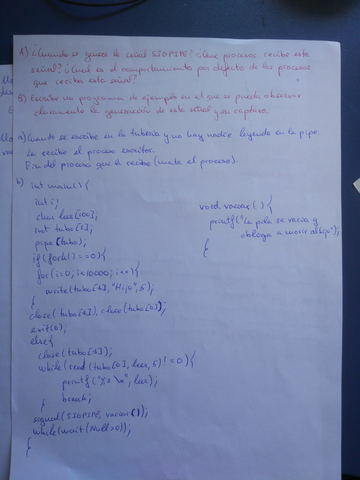 A) ¿Cuando se genera la señal SIGPIPE? ¿Que procesos recibe esta
señal? ¿Cuál es el comportamiento por defecto de los procesos
que reciba esta señal?
B) Escribe un programa de ejemplo en el que se pueda observar
claramente la generación de esta señal y su captura.
a) Cuando se escribe en la tubería y no hay nadie leyendo en la pipe.
La recibe el proceso escritor.
Fin del proceso que la recibe (mata el proceso).
b) int main() {
int i;
char leer[100];
int tubo[2];
pipe (tubo);
if (fork() == 0) {
for (i=0; i<10000; i++) {
write (tubo[1], "Hijo", 5);
}
close (tubo[1]), close (tubo[0]);
exit(0);
else {
close (tubo[1]);
while (read (tubo[0], leer, 5) != 0) {
printf ("%s \n", leer);
break;
}
signal (SIGPIPE, vaciar());
while (wait (Null>0));
}
void vaciar () {
printf ("La pila se vacia y
obliga a morir al hijo");
}